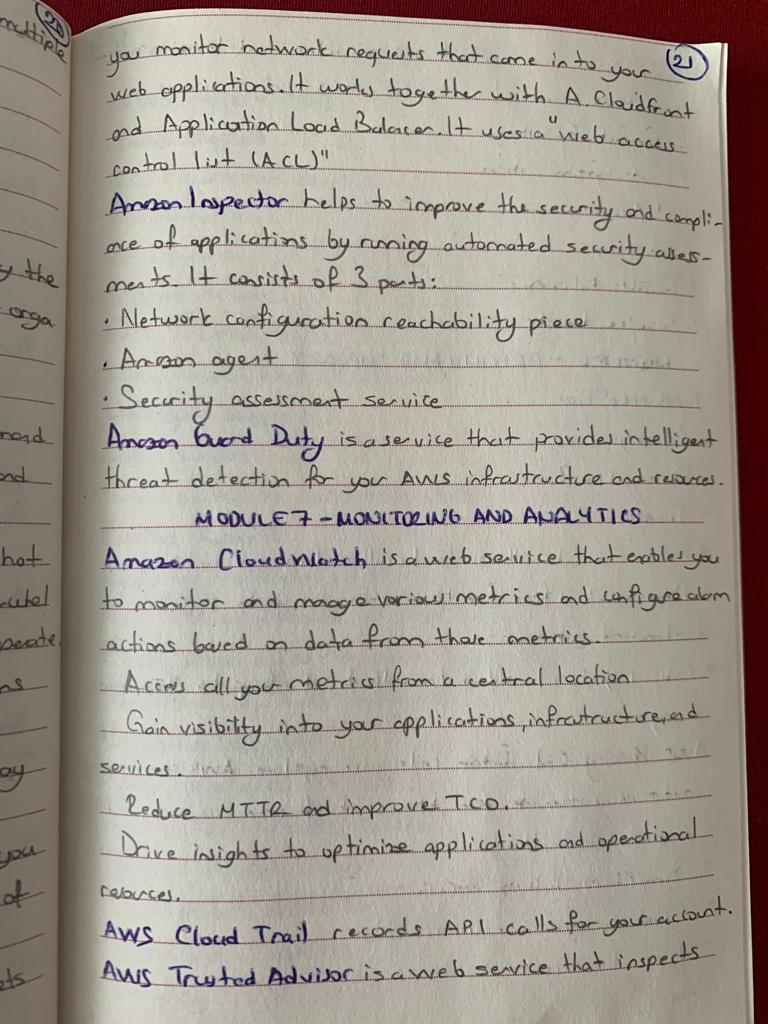 21
you monitor network requests that come in to your
web applications. It works together with A. Cloudfront
and Application Load Balancer. It uses a "web access
control list (ACL)"
Amazon Inspector helps to improve the security and compli-
ance of applications by running automated security assess-
ments. It consists of 3 parts:
• Network configuration reachability piece
• Amazon agent
• Security assessment service
Amazon Guard Duty is a service that provides intelligent
threat detection for your AWS infrastructure and resources.
MODULE 7 - MONITORING AND ANALYTICS
Amazon CloudWatch is a web service that enables you
to monitor and manage various metrics and configure alarm
actions based on data from those metrics.
Access all your metrics from a central location
Gain visibility into your applications, infrastructure, and
services.
Reduce MTTR and improve TCO.
Drive insights to optimize applications and operational
resources.
AWS Cloud Trail records API calls for your account.
AWS Trusted Advisor is a web service that inspects
20
multiple
y the
orga
and
hot
perate
ay
you
of